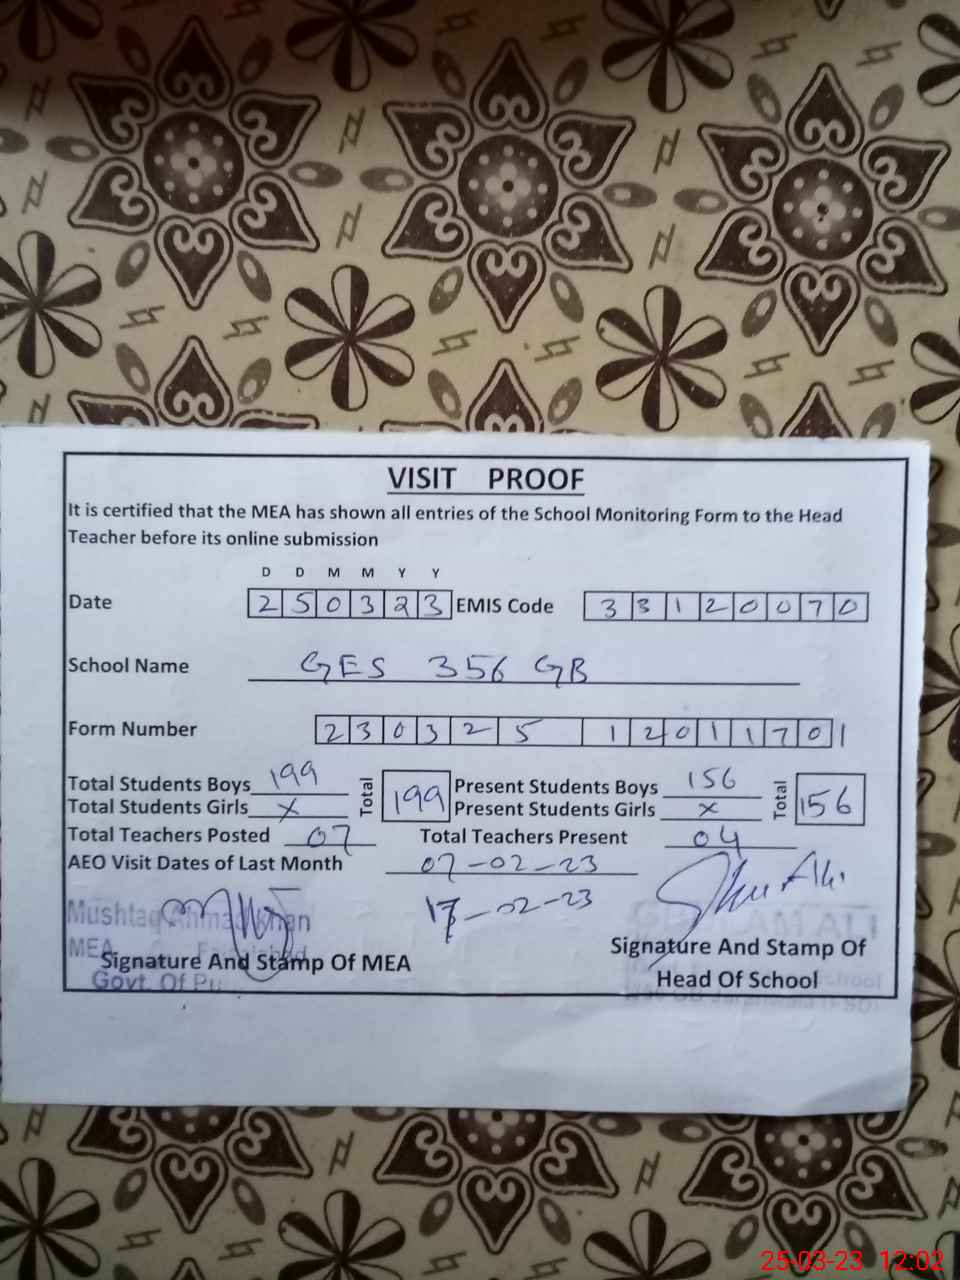 VISIT PROOF
It is certified that the MEA has shown all entries of the School Monitoring Form to the Head
Teacher before its online submission
D D M M Y Y
Date 2 5 0 3 2 3 EMIS Code 3 3 1 2 0 0 7 0
School Name GES 356 GB
Form Number 2 3 0 3 2 5 1 2 0 1 1 7 0 1
Total Students Boys 199 Total 199 Present Students Boys 156 Total 156
Total Students Girls X Present Students Girls X
Total Teachers Posted 07 Total Teachers Present 04
AEO Visit Dates of Last Month 07-02-23
17-02-23
Mushtaq Ahmad Khan
MEA Faisalabad
Govt. Of
GHULAM ALI
Signature And Stamp Of MEA
Signature And Stamp Of
Head Of School
School
GB Jaranwala (FSD)
25-03-23 12:02